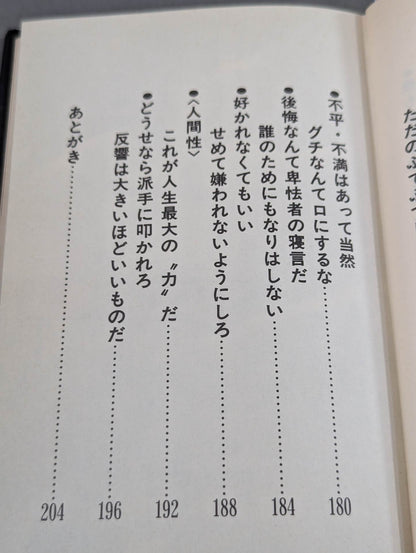 ●不平・不満はあって当然
グチなんて口にするな……………………180
●後悔なんて卑怯者の寝言だ
誰のためにもなりはしない……………………184
●好かれなくてもいい
せめて嫌われないようにしろ……………………188
●〈人間性〉
これが人生最大の〝力〟だ……………………192
●どうせなら派手に叩かれろ
反響は大きいほどいいものだ……………………196
あとがき……………………204